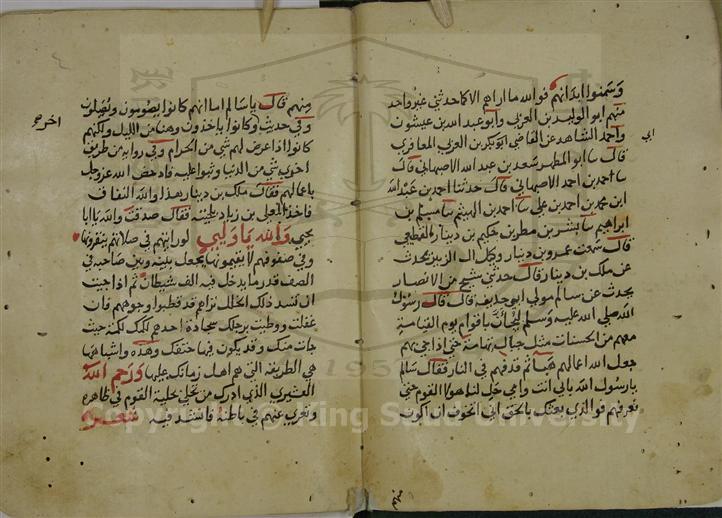 وسمنوا ابدانهم فوالله ما اراهم الا كما حدثني غير واحد
منهم ابو الوليد بن العربي وابو عبد الله بن عيشون
ابي
واحمد الشاهد عن القاضي ابو بكر بن العربي المعافري
قال نا ابو المطهر سعد بن عبد الله الاصبهاني قال
نا احمد بن احمد الاصبهاني قال حدثنا احمد بن عبد الله
ابن محمد بن احمد بن علي نا احمد بن الهيثم نا مسلم بن
ابراهيم نا بشر بن مطر بن حكيم بن دينار القطعي
قال سمعت عمرو بن دينار وكيل ال الزبير يحدث
عن ملك بن دينار قال حدثني شيخ من الانصار
يحدث عن سالم مولى ابو حذيفه قال قال رسول
الله صلى الله عليه وسلم ليجأن باقوام يوم القيامة
معهم من الحسنات مثل جبال تهامة حتى اذا جي بهم
جعل الله اعمالهم هبآ ثم قذفهم في النار فقال سالم
يارسول الله بابي انت وامي حل لنا هولا القوم حتى
نعرفهم فوالذي بعثك بالحق اني اتخوف ان اكون
منهم قال ياسالم اما انهم كانوا يصومون ويصلون
اخرى
وفي حديث وكانوا ياخذون وهنا من الليل ولكنهم
كانوا اذا عرض لهم شي من الحرام وفي روايه من طريق
اخرى شي من الدنيا وثبوا عليه فادحض الله عزوجل
باعمالهم فقال ملك بن دينار هذا والله النفاق
فاخذ المعلى بن زياد بلحيته فقال صدقت والله يابا
يحيى والله ياوليي لو رايتهم في صلاتهم ينقرونها
وفي صفوفهم لا يقيمونها يجعل بينه وبين صاحبه في
الصف قدر ما يدخل فيه الف شيطان ثم اذا جيت
ان تسد ذلك الخلل تراهم قد قطبوا وجوههم فان
غفلت ووطيت برجلك سجادة احدهم لكمك لكمة حيث
جات منك وقد يكون فيها حتفك وهذه واشباهها
هي الطريقه التي هو اهل زمانك عليها ورحم الله
القشيري الذي ادرك من تحلى بحلية القوم في ظاهره
وتعرى عنهم في باطنه فانشد فيه شعر